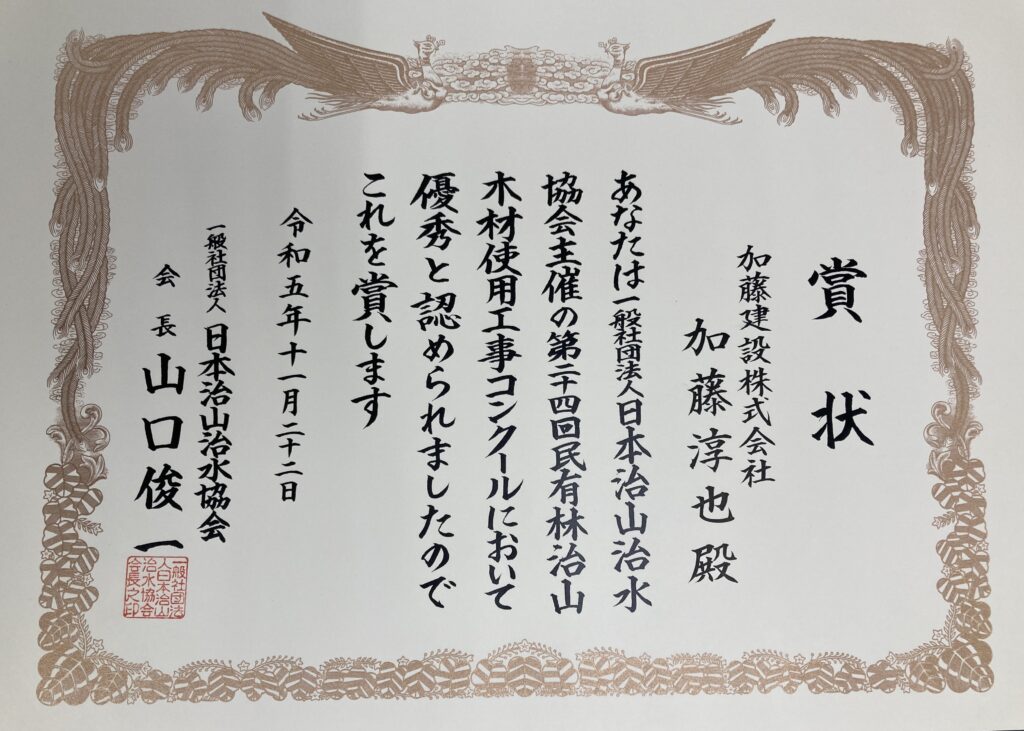 賞状
加藤建設株式会社
加藤淳也殿
あなたは一般社団法人日本治山治水
協会主催の第二十四回民有林治山
木材使用工事コンクールにおいて
優秀と認められましたので
これを賞します
令和五年十一月二十二日
一般社団法人日本治山治水協会
会長 山口俊一
一般社団法
人日本治山
治水協会
会長之印